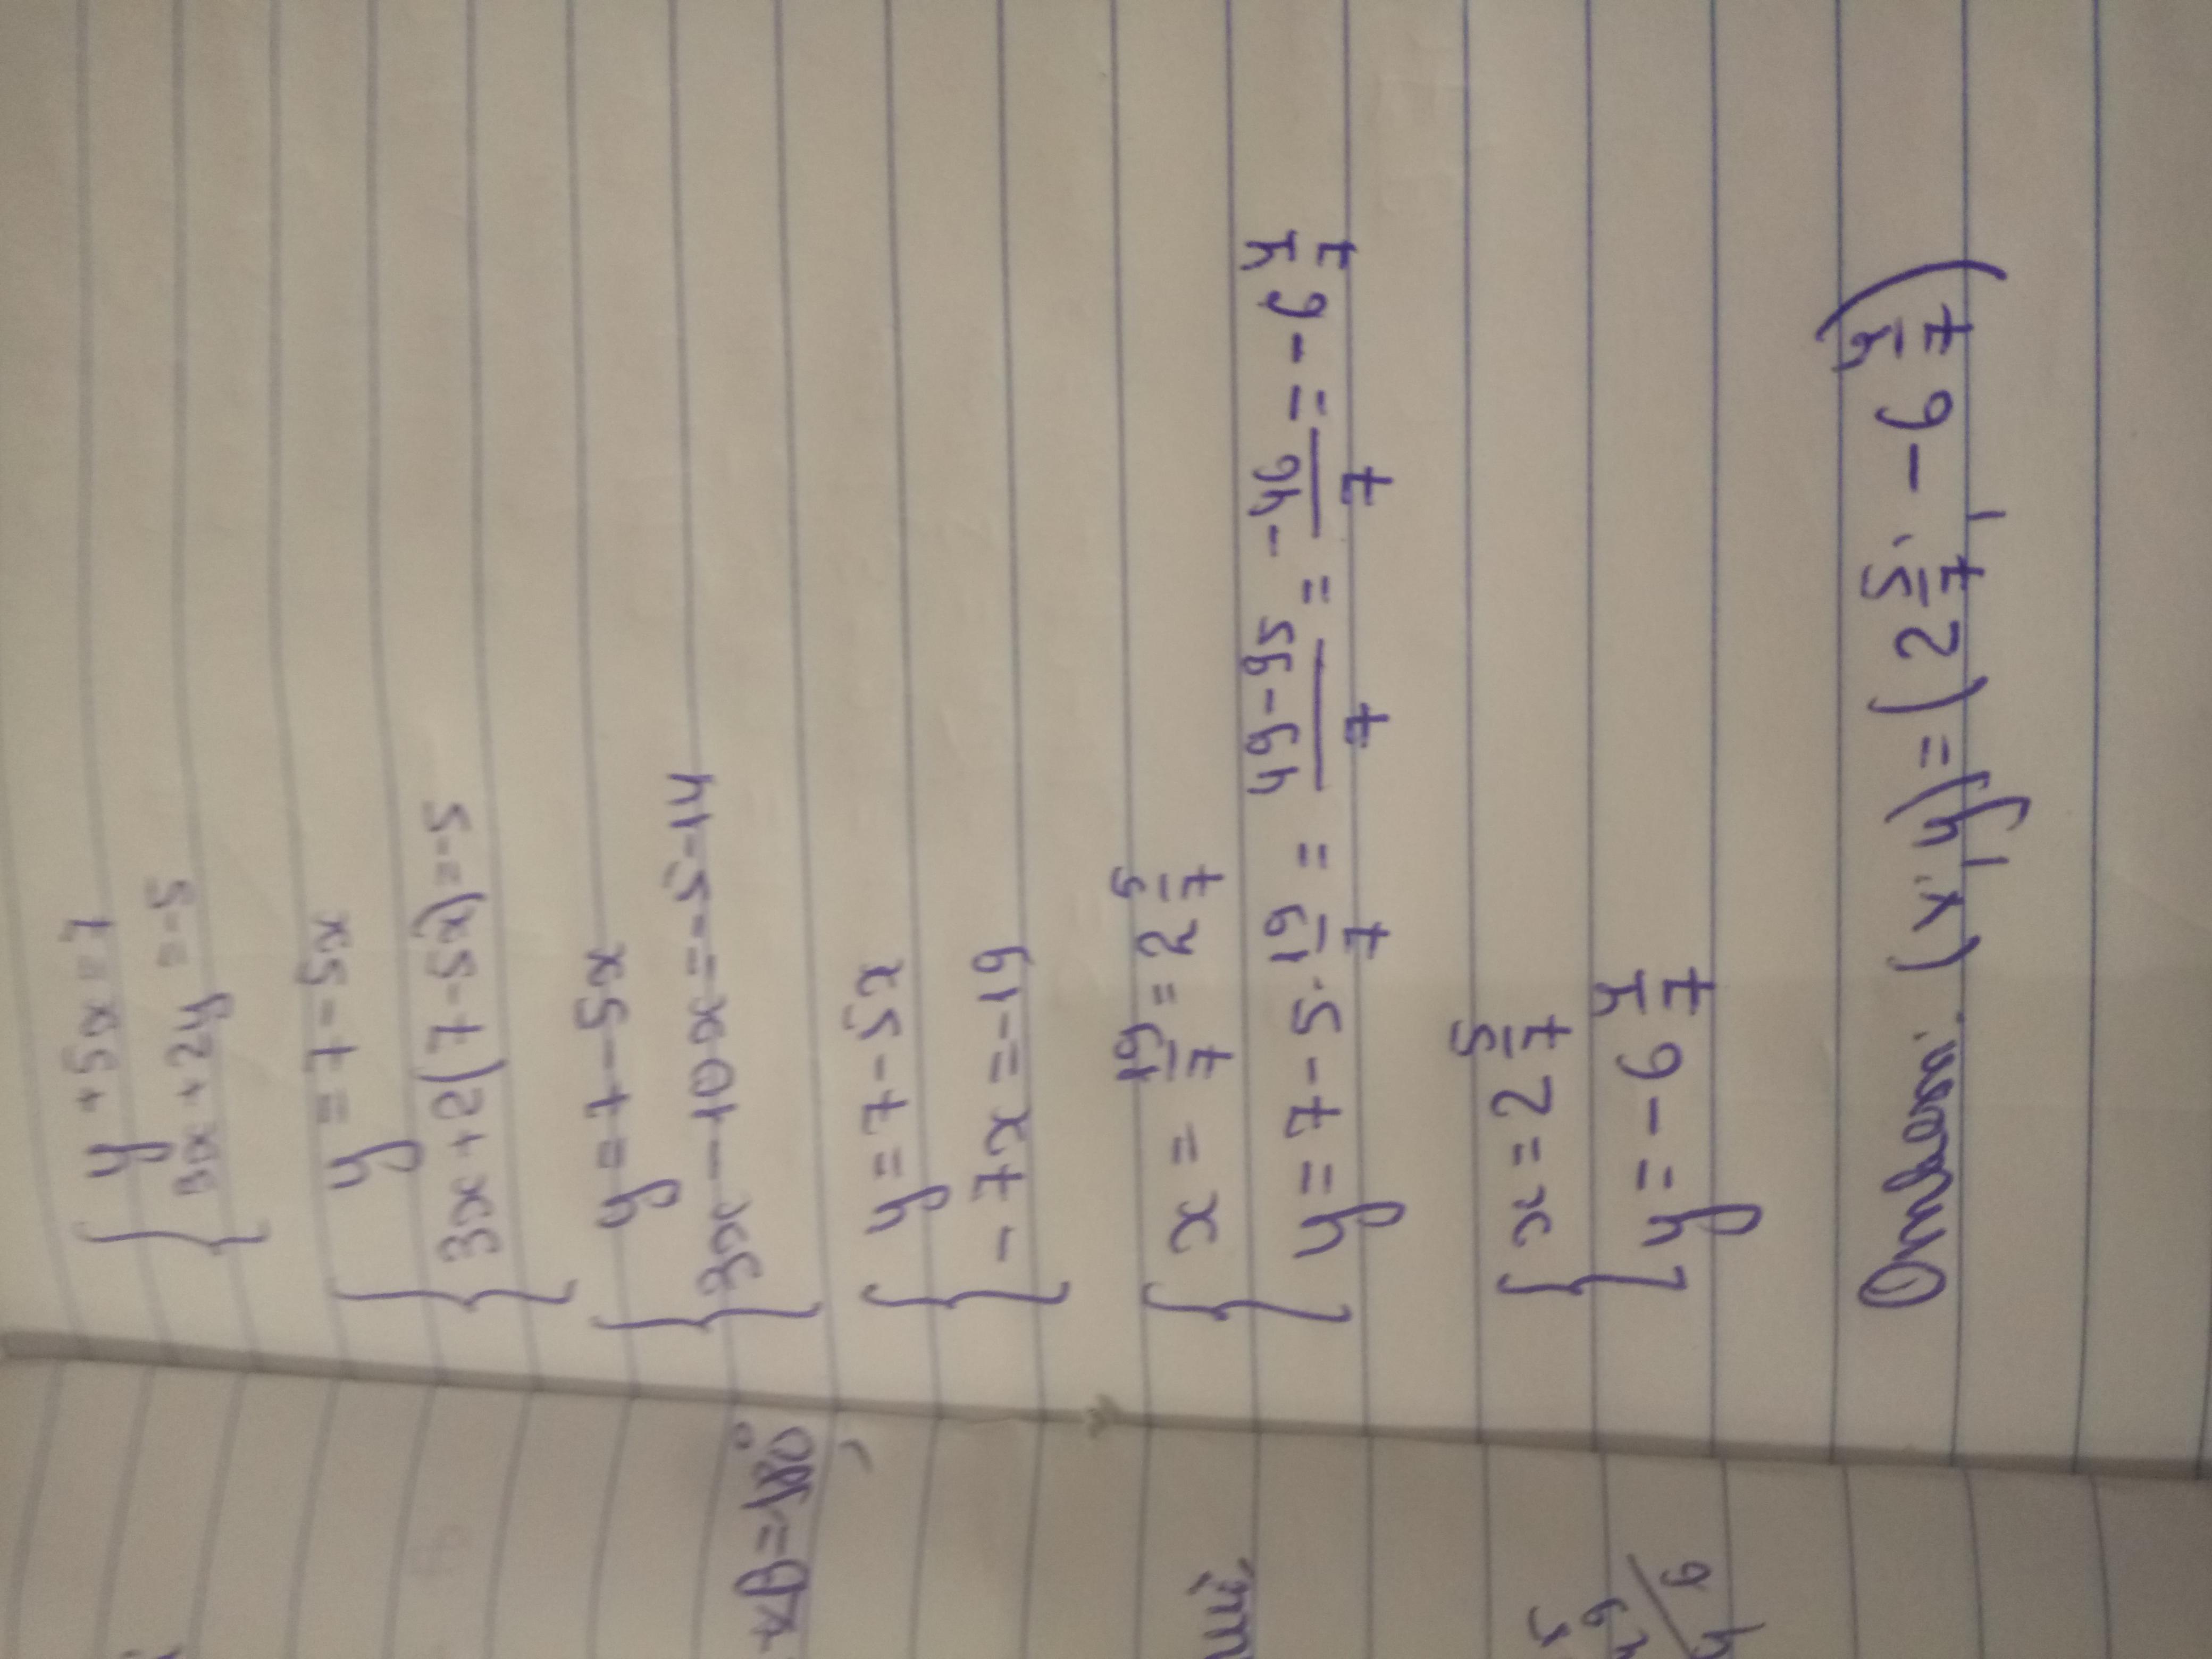 { y + 5x = 7
3x + 2y = -5
{ y = 7 - 5x
3x + 2(7 - 5x) = -5
{ y = 7 - 5x
3x - 10x = -5 - 14
{ y = 7 - 5x
- 7x = -19
{ x = 19/7 = 2 5/7
y = 7 - 5 · 19/7 = 49-95/7 = -46/7 = - 6 4/7
{ x = 2 5/7
y = - 6 4/7
Ответ: (x; y) = (2 5/7; - 6 4/7)
=180°